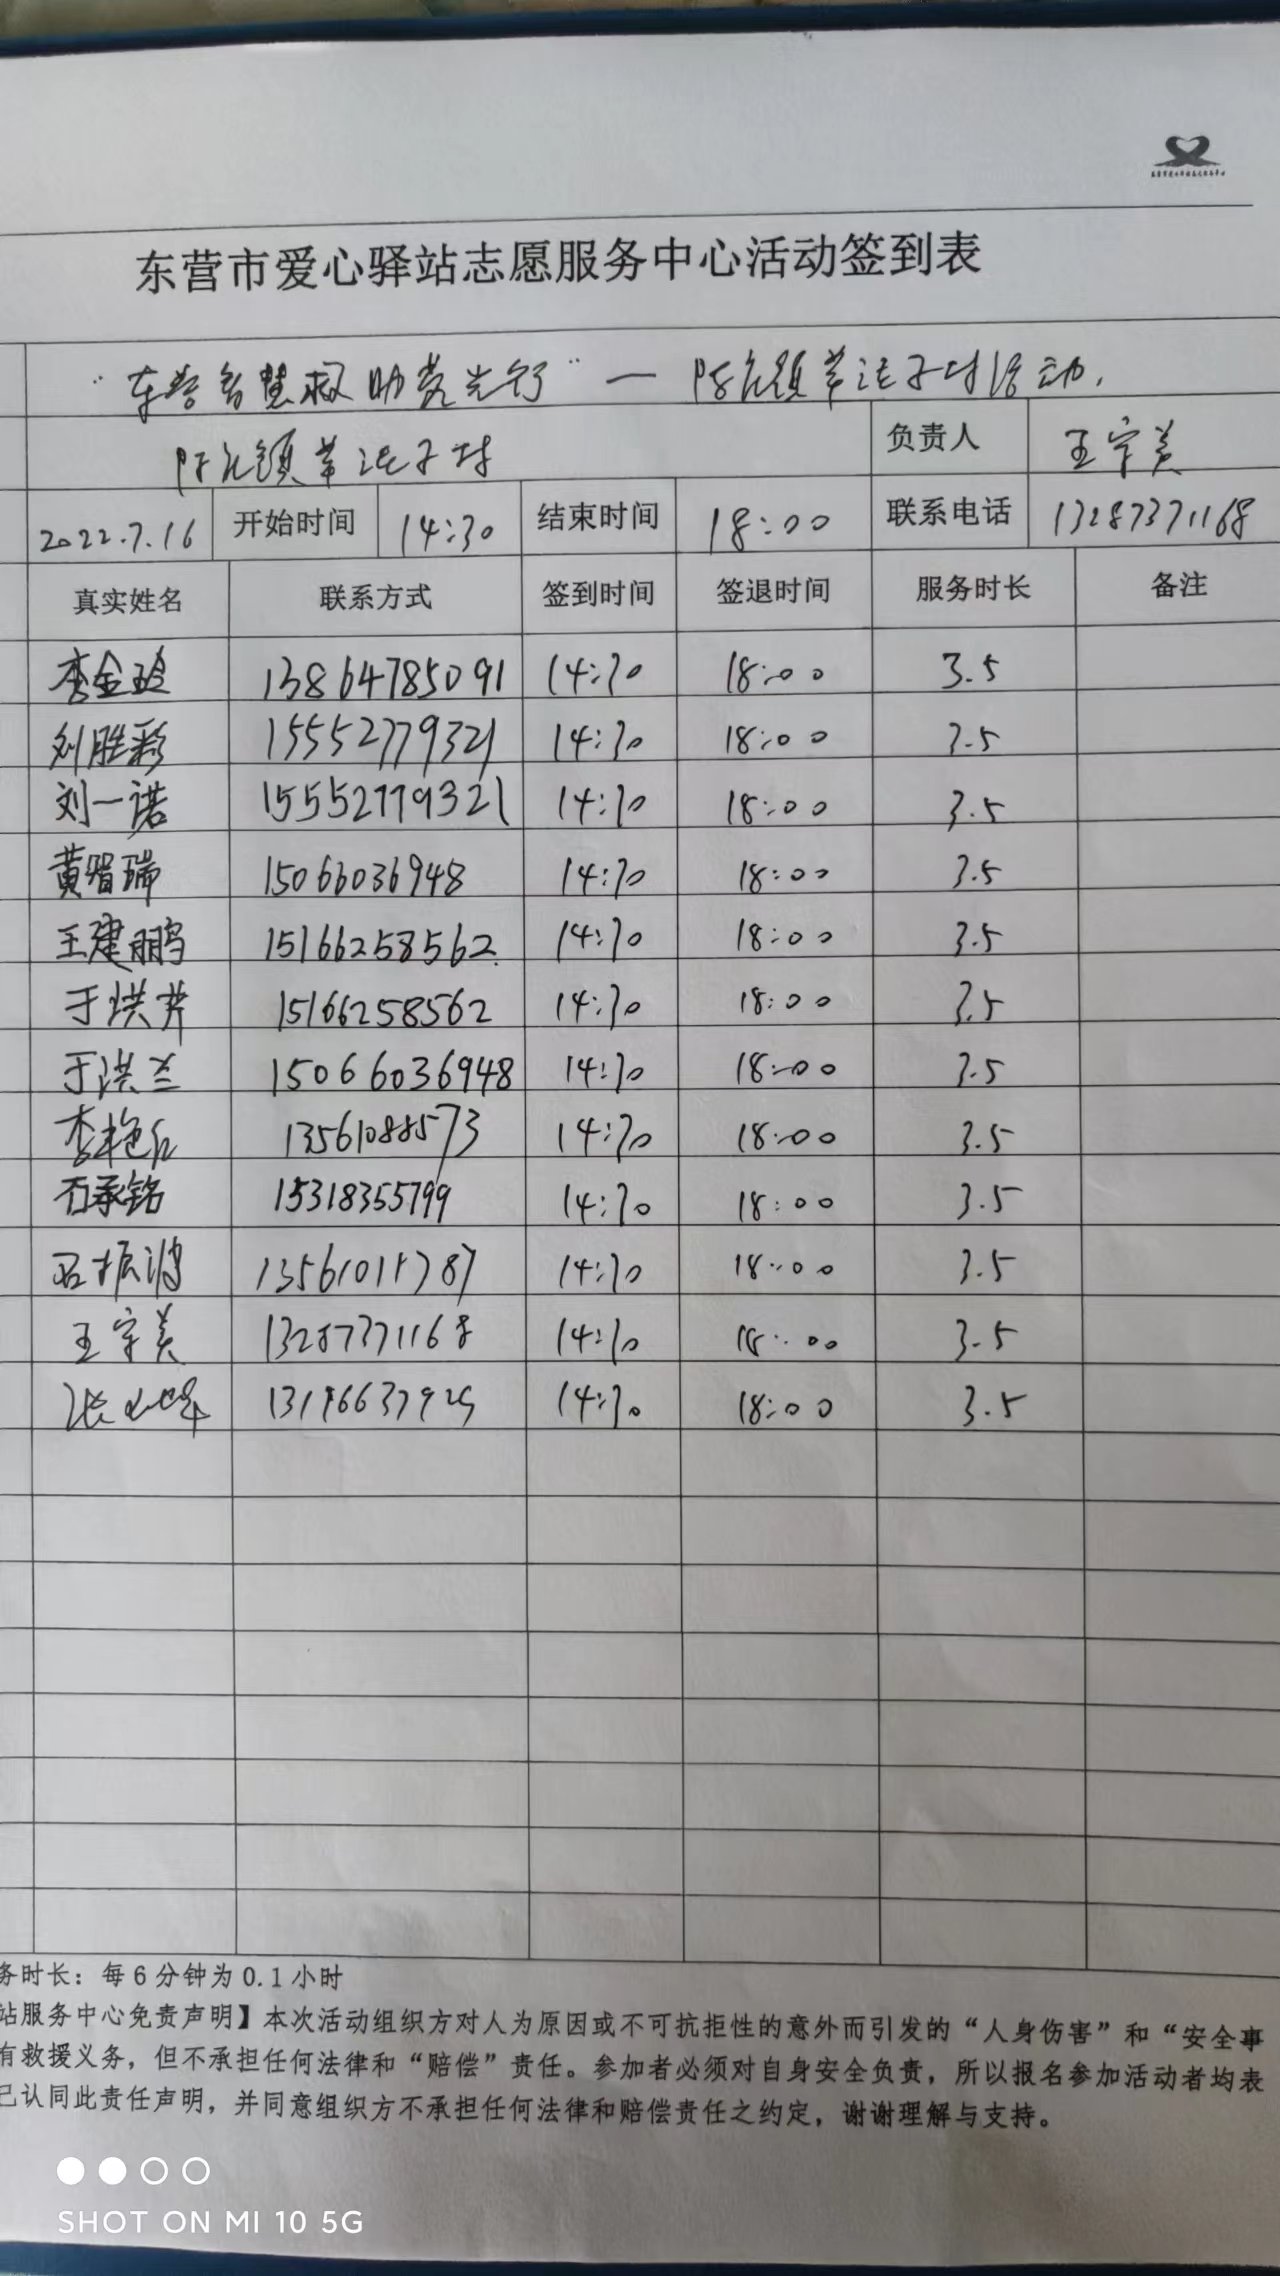 东营市爱心驿站志愿服务中心活动签到表
“东营智慧救助莞光行”— 陈官镇常活动.
陈官镇 负责人 王宇美
2022.7.16 开始时间 14:30 结束时间 18:00 联系电话 13287371168
真实姓名 联系方式 签到时间 签退时间 服务时长 备注
李金玲 13864785091 14:30 18:00 3.5
刘胜彩 15552779321 14:30 18:00 3.5
刘一诺 15552779321 14:30 18:00 3.5
黄智瑞 15066036948 14:30 18:00 3.5
王建鹏 15166258562 14:30 18:00 3.5
于洪芹 15166258562 14:30 18:00 3.5
于洪兰 15066036948 14:30 18:00 3.5
李艳红 13561088573 14:30 18:00 3.5
石承铭 15318355799 14:30 18:00 3.5
石振波 14:30 18:00 3.5
王宇美 13287371168 14:30 18:00 3.5
张 14:30 18:00 3.5
务时长：每6分钟为0.1小时
站服务中心免责声明】本次活动组织方对人为原因或不可抗拒性的意外而引发的“人身伤害”和“安全事
有救援义务，但不承担任何法律和“赔偿”责任。参加者必须对自身安全负责，所以报名参加活动者均表
已认同此责任声明，并同意组织方不承担任何法律和赔偿责任之约定，谢谢理解与支持。
SHOT ON MI 10 5G